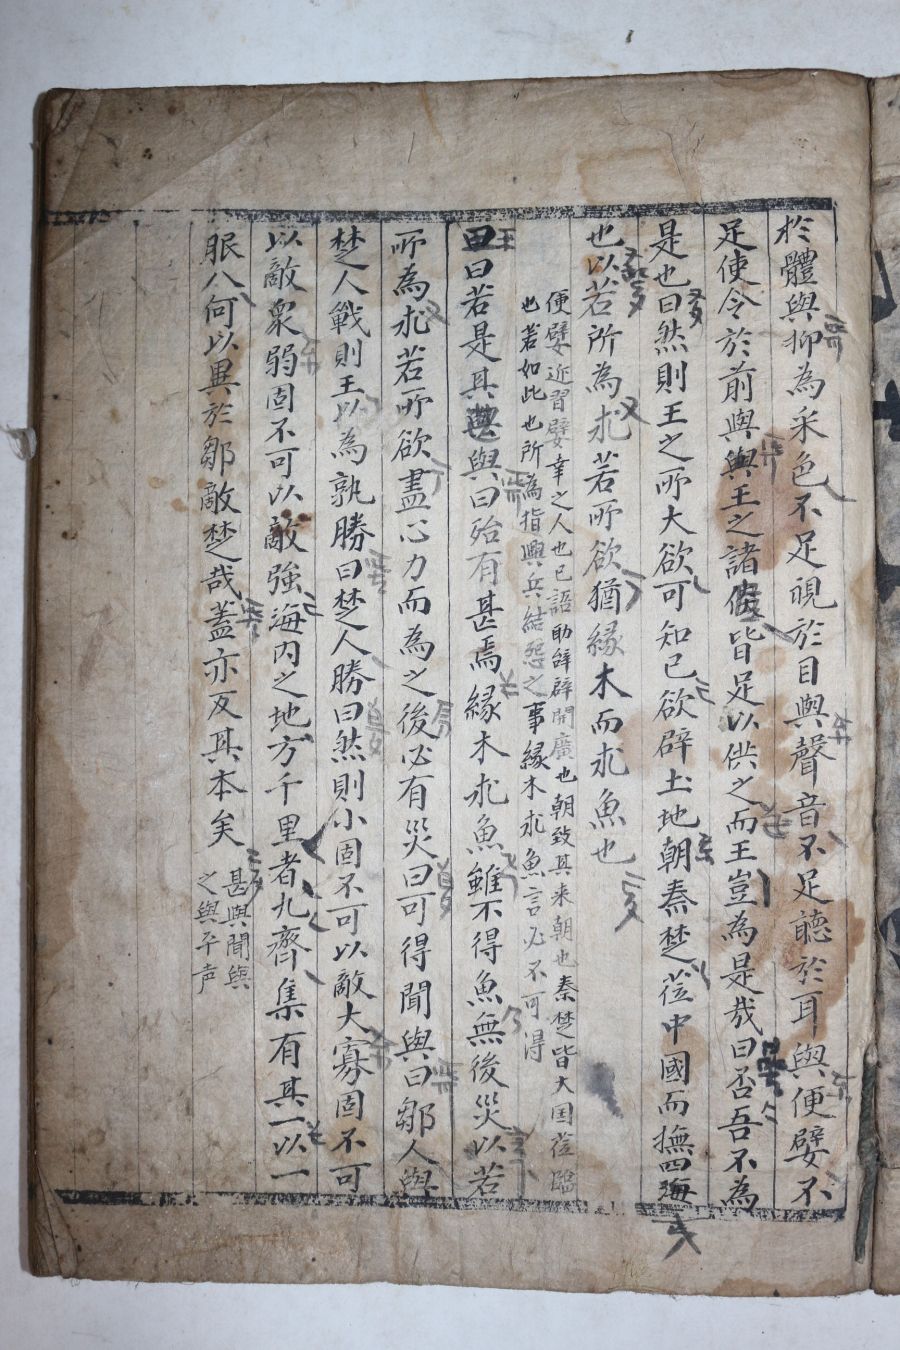 於體與抑為采色不足視於目與聲音不足聽於耳與便嬖不
足使令於前與王之諸臣皆足以供之而王豈為是哉曰否吾不為
是也曰然則王之所大欲可知已欲辟土地朝秦楚莅中國而撫四海
也以若所為求若所欲猶緣木而求魚也
便嬖近習嬖幸之人也已語助辭辟開廣也朝致其来朝也秦楚皆大国莅臨
也若如此也所為指興兵結怨之事緣木求魚言必不可得
王曰若是其與曰殆有甚焉緣木求魚雖不得魚無後災以若
所為求若所欲盡心力而為之後必有災曰可得聞與曰鄒人與
楚人戰則王以為孰勝曰楚人勝曰然則小固不可以敵大寡固不可
以敵衆弱固不可以敵強海內之地方千里者九齊集有其一以一
服八何以異於鄒敵楚哉蓋亦反其本矣
甚與聞與
之與平声